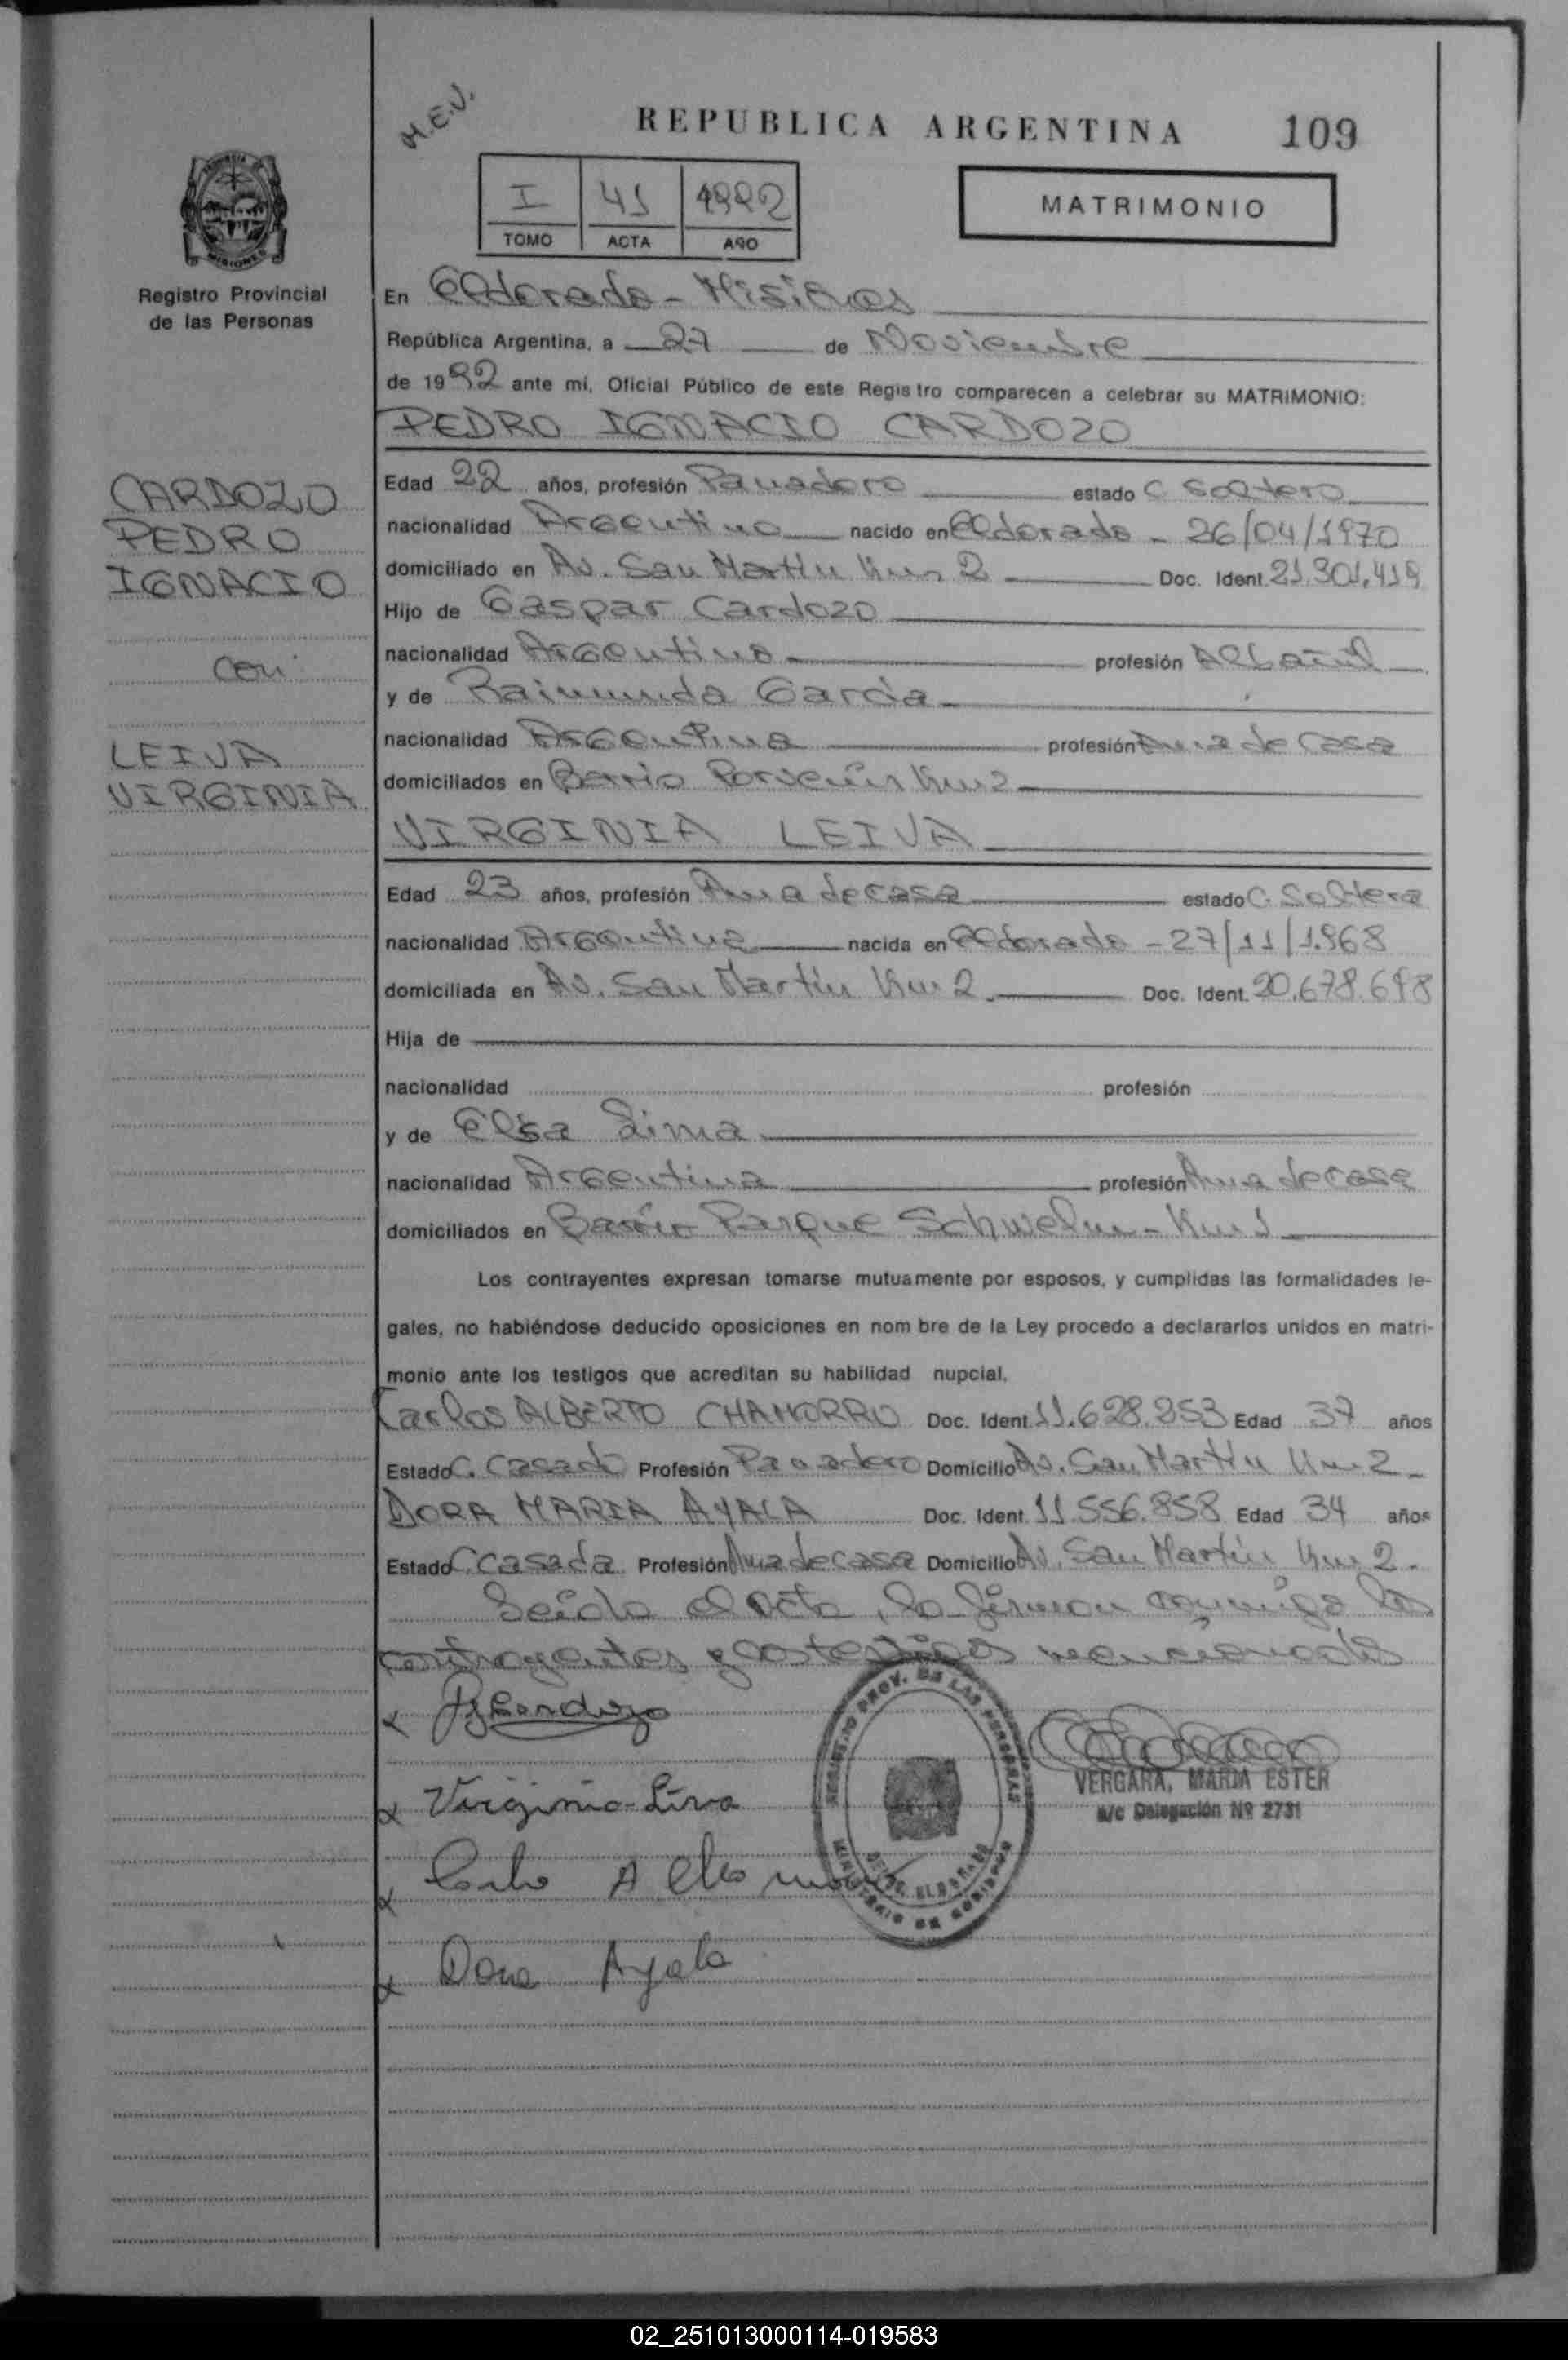 M.E.V.
REPUBLICA ARGENTINA
109
I 41 1992
TOMO ACTA AÑO
MATRIMONIO
MISIONES
Registro Provincial
de las Personas
CARDOZO
PEDRO
IGNACIO
con
LEIVA
VIRGINIA
En Eldorado - Misiones
República Argentina, a 27 de Noviembre
de 1992 ante mí, Oficial Público de este Registro comparecen a celebrar su MATRIMONIO:
PEDRO IGNACIO CARDOZO
Edad 22 años, profesión Panadero estado C. Soltero
nacionalidad Argentino nacido en Eldorado - 26/04/1970
domiciliado en Av. San Martín Km 2 Doc. Ident. 21.301.419
Hijo de Gaspar Cardozo
nacionalidad Argentino profesión Albañil
y de Raimunda García
nacionalidad Argentina profesión Ama de casa
domiciliados en Barrio Porvenir Km 2
VIRGINIA LEIVA
Edad 23 años, profesión Ama de casa estado C. Soltera
nacionalidad Argentina nacida en Eldorado - 27/11/1.968
domiciliada en Av. San Martín Km 2 Doc. Ident. 20.678.698
Hija de
nacionalidad profesión
y de Elsa Lima
nacionalidad Argentina profesión Ama de casa
domiciliados en Barrio Parque Schwelm - Km 1
Los contrayentes expresan tomarse mutuamente por esposos, y cumplidas las formalidades le-
gales, no habiéndose deducido oposiciones en nom bre de la Ley procedo a declararlos unidos en matri-
monio ante los testigos que acreditan su habilidad nupcial.
Carlos ALBERTO CHAMORRO Doc. Ident. 11.628.853 Edad 37 años
Estado C. Casado Profesión Panadero Domicilio Av. San Martín Km 2
DORA MARIA AYALA Doc. Ident. 11.556.858 Edad 34 años
Estado C. casada Profesión Ama de casa Domicilio Av. San Martín Km 2.
Leída el acta, la firman conmigo los
contrayentes y los testigos mencionados
Virginia Leiva
Dora Ayala
REGISTRO PROV. DE LAS PERSONAS
MINISTERIO DE GOBIERNO
VERGARA, MARIA ESTER
a/c Delegación Nº 2731
02_251013000114-019583